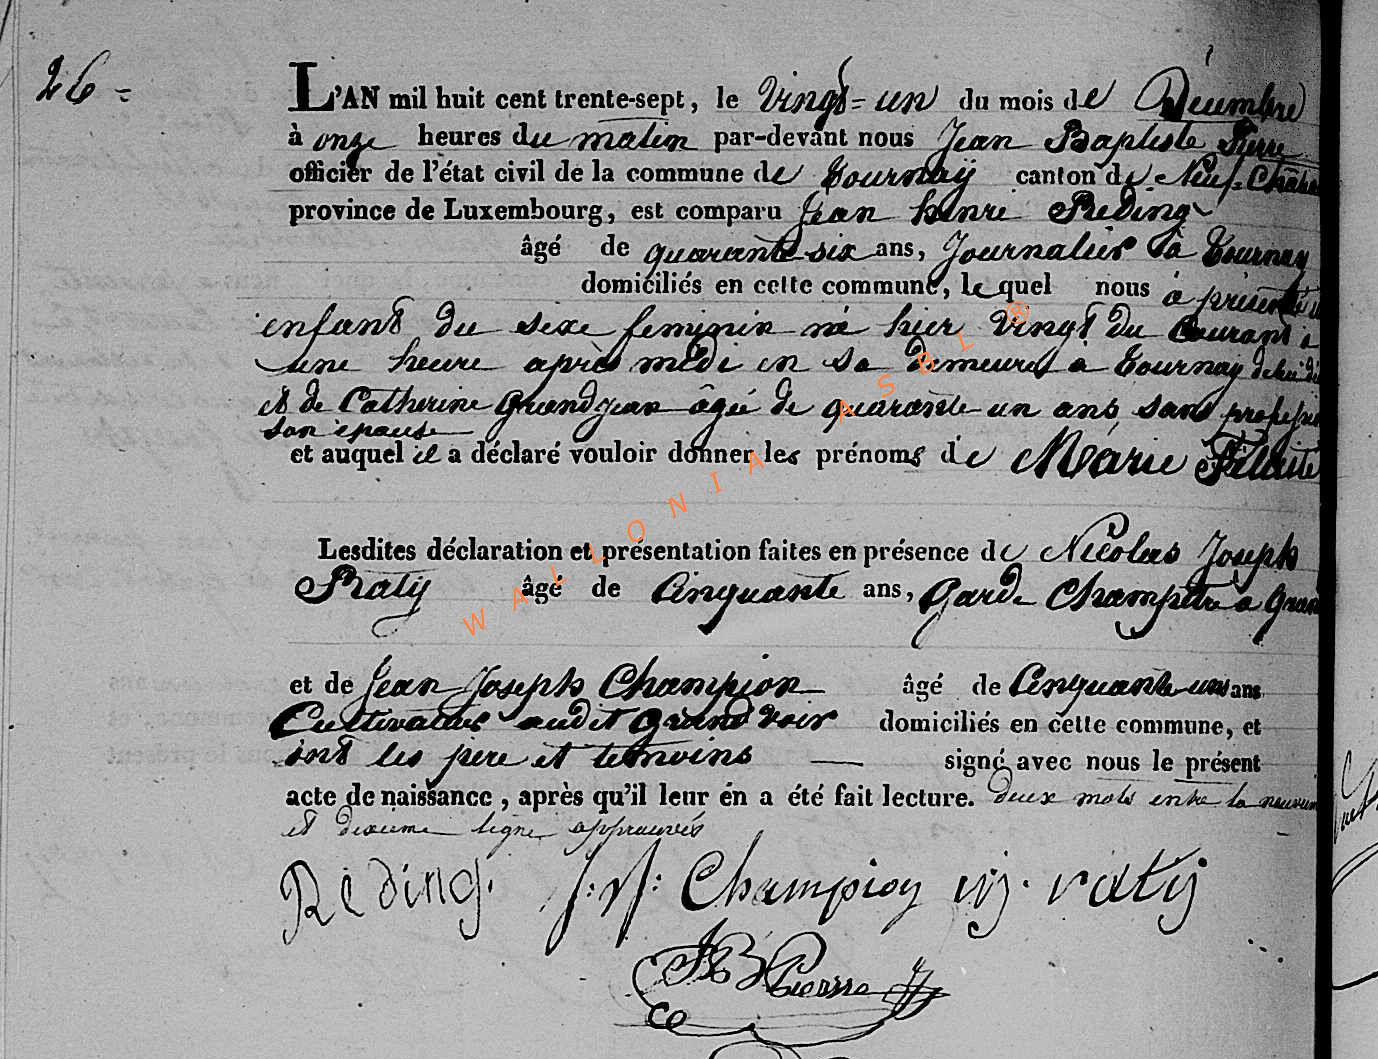 26 =
L'AN mil huit cent trente-sept, le Vingt-un du mois de Décembre
à onze heures du matin par-devant nous Jean Baptiste Pierre
officier de l'état civil de la commune de Tournaÿ canton de Neuf-Châte
province de Luxembourg, est comparu Jean henri Reding
âgé de quarante-six ans, Journalier à Tournay
domiciliés en cette commune, lequel nous à présenté u
enfant du sexe feminin né hier vingt du Courant à
une heure après midi en sa demeure a Tournay de lui di
et de Catherine Grandjean âgée de quarante un ans sans professi
son épouse
et auquel il a déclaré vouloir donner les prénoms de Marie
Lesdites déclaration et présentation faites en présence de Nicolas Joseph
Raty âgé de Cinquante ans, Garde Champêtre a Gran
et de Jean Joseph Champion âgé de Cinquante un ans
Cultivateur audit Grand voir domiciliés en cette commune, et
ont les pere et temoins signé avec nous le présent
acte de naissance, après qu'il leur én a été fait lecture. deux mots entre la neuvem
et dixieme ligne approuvés
Reding. J: J: Champion nj. raty
JB Pierre
WALLONIA ASBL ®